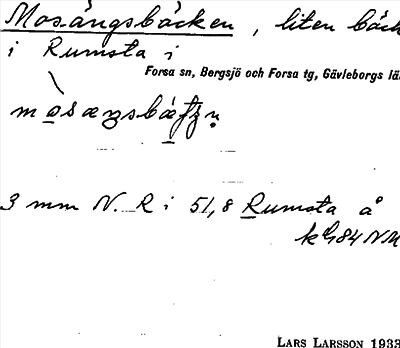 Mosängsbäcken, liten bäck
i Rumsta i
Forsa sn, Bergsjö och Forsa tg, Gävleborgs lä
3 mm N. R i 51,8 Rumsta å
84 NM
LARS LARSSON 1933